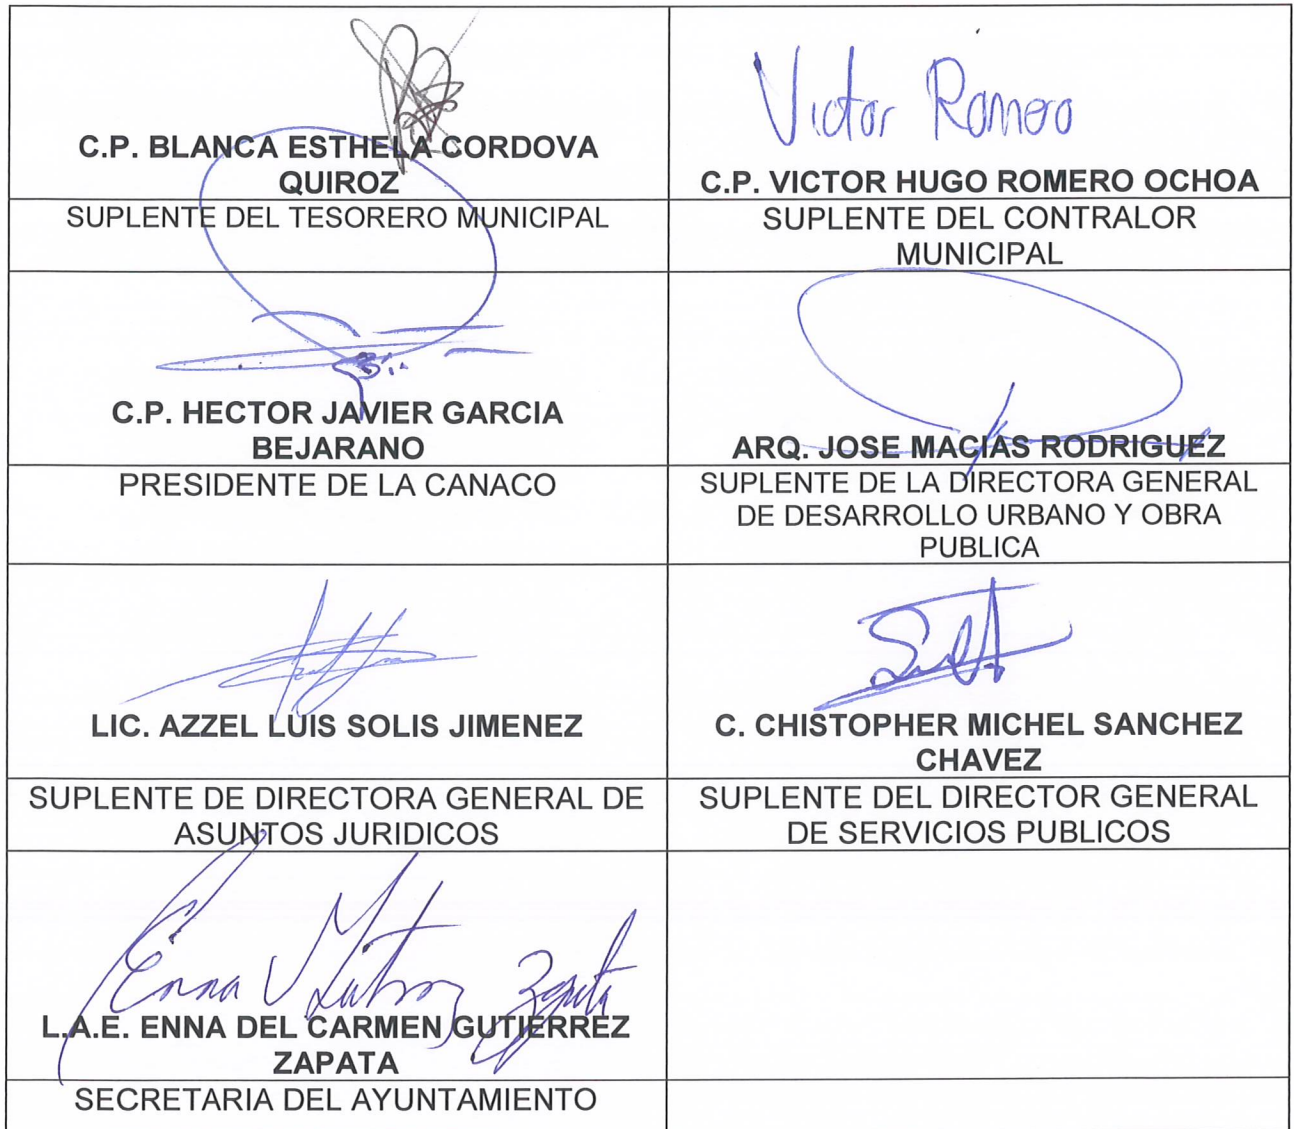 Victor Romero
C.P. BLANCA ESTHELA CORDOVA
QUIROZ
C.P. VICTOR HUGO ROMERO OCHOA
SUPLENTE DEL TESORERO MUNICIPAL
SUPLENTE DEL CONTRALOR
MUNICIPAL
C.P. HECTOR JAVIER GARCIA
BEJARANO
ARQ. JOSE MACIAS RODRIGUEZ
PRESIDENTE DE LA CANACO
SUPLENTE DE LA DIRECTORA GENERAL
DE DESARROLLO URBANO Y OBRA
PUBLICA
LIC. AZZEL LUIS SOLIS JIMENEZ
C. CHISTOPHER MICHEL SANCHEZ
CHAVEZ
SUPLENTE DE DIRECTORA GENERAL DE
ASUNTOS JURIDICOS
SUPLENTE DEL DIRECTOR GENERAL
DE SERVICIOS PUBLICOS
Enna Zapata
L.A.E. ENNA DEL CARMEN GUTIERREZ
ZAPATA
SECRETARIA DEL AYUNTAMIENTO